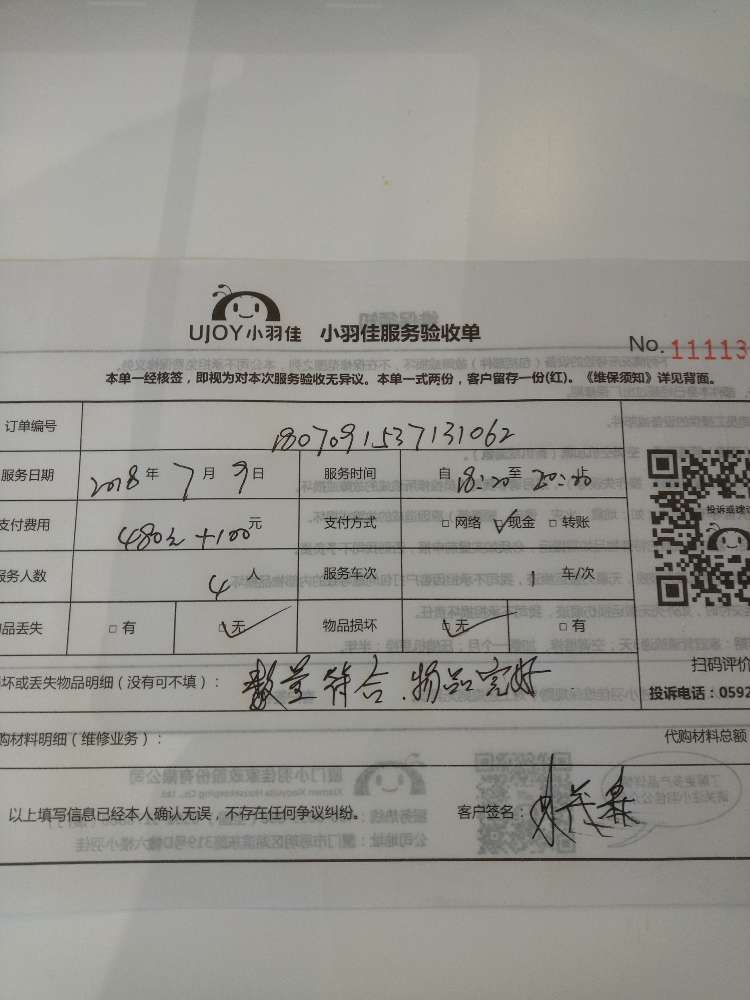 UJOY小羽佳 小羽佳服务验收单
No. 11113
本单一经核签，即视为对本次服务验收无异议。本单一式两份，客户留存一份(红)。《维保须知》详见背面。
订单编号 180709153713106２
服务日期 2018 年 7 月 9 日 服务时间 自 18:20 至 20:20 止
支付费用 480元+100 元 支付方式 □ 网络 ☑ 现金 □ 转账
服务人数 4 人 服务车次 1 车/次
品丢失 □ 有 ☑ 无 物品损坏 ☑ 无 □ 有
投诉或建议
坏或丢失物品明细（没有可不填）： 数量符合、物品完好
扫码评价
投诉电话：0592
购材料明细（维修业务）： 代购材料总额
以上填写信息已经本人确认无误，不存在任何争议纠纷。 客户签名：